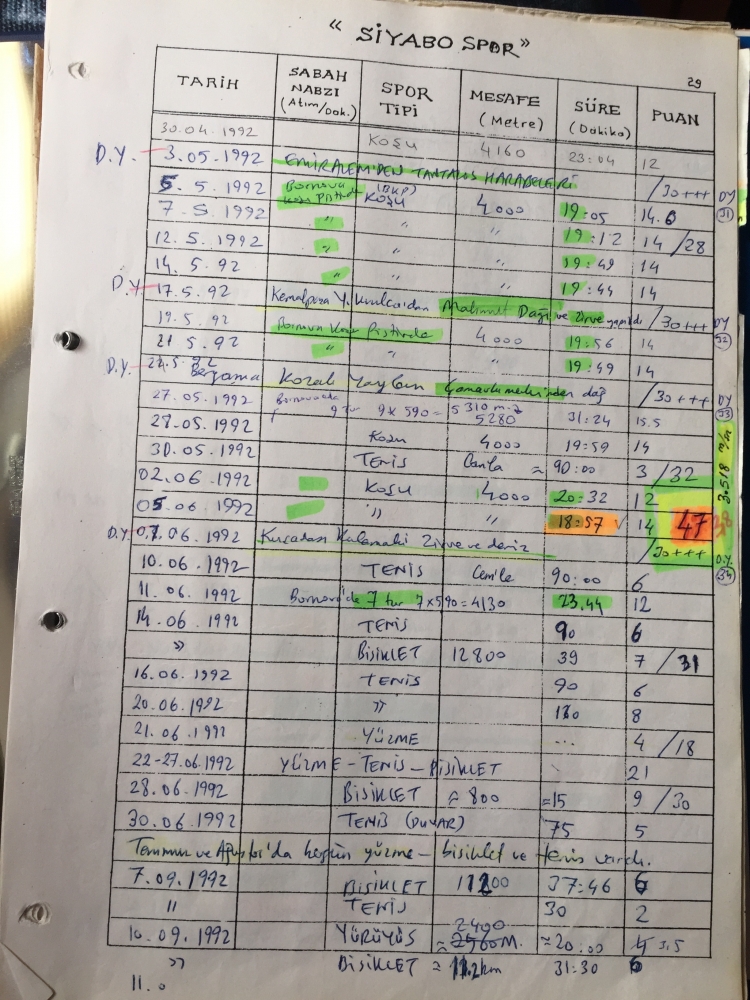 " SİYABO SPOR "
29
TARİH SABAH NABZI (Atım/Dak.) SPOR TİPİ MESAFE (Metre) SÜRE (Dakika) PUAN
30.04.1992 KOŞU 4160 23:04 12
D.Y. 3.05.1992 EMİRALEM'DEN TANTALOS HARABELERİ /30+++ DY 31
5.5.1992 Bornova Koşu Pistinde (BKP) KOŞU 4000 19:05 14.6
7.5.1992 " " " 19:12 14 /28
12.5.1992 " " " 19:49 14
14.5.92 " " " 19:44 14
D.Y 17.5.92 Kemalpaşa Y. Kızılca'dan Mahmut Dağı ve zirve yapıldı /30+++ DY 32
19.5.92 Bornova Koşu Pistinde 4000 19:56 14
21 5.92 " " 19:49 14
D.Y. 5.92 Bergama Kozak Yaylası dağ /30+++ DY 33
27.05.1992 Bornova'da 9 tur 9x590= 5310 m. 5280 31:24 15.5
28.05.1992 Koşu 4000 19:59 14
30.05.1992 TENİS Canla ≈ 90:00 3 /32
3.518
02.06.1992 KOŞU 4000 20:32 12
05.06.1992 " " 18:57 √ 14 47 38
D.Y. 07.06.1992 Kuşadası Kalamaki Zirve ve deniz /30+++ D.Y. 34
10.06.1992 TENİS Cemile 90:00 6
11.06.1992 Bornova'da 7 tur 7x590=4130 23.44 12
14.06.1992 TENİS 90 6
" BİSİKLET 12800 39 7 /31
16.06.1992 TENİS 90 6
20.06.1992 " 130 8
21.06.1992 YÜZME ... 4 /18
22-27.06.1992 YÜZME - TENİS - BİSİKLET 21
28.06.1992 BİSİKLET ≈ 800 ≈15 9 /30
30.06.1992 TENİS (DUVAR) 75 5
Temmuz ve Ağustos'da hergün yüzme - bisiklet ve tenis vardı.
7.09.1992 BİSİKLET 11200 37:46 6
" TENİS 30 2
10.09.1992 YÜRÜYÜŞ 2400 ≈ 2500M. ≈20.00 4 3.5
" BİSİKLET ≈ 11.2km 31:30 6
11.0